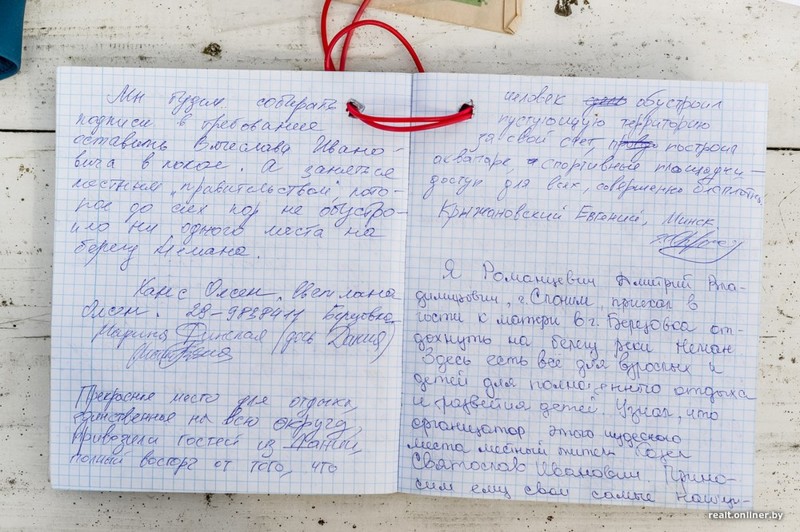 Мы будем собирать
подписи в требование
оставить Вячеслава Ивано-
вича в покое. А заняться
местным "правительством", кото-
рое до сих пор не обустро-
ило ни одного места на
берегу Немана.
Ханс Олсен. Светлана
Олсен. 29-9838411 Березовка
Марина Финская (дочь Дания)
Прекрасное место для отдыха,
единственное на всю округу,
привозили гостей из Дании,
полный восторг от того, что
человек обустроил
пустующую территорию
за свой счет, построил
аквапарк, спортивные площадки —
доступ для всех, совершенно бесплатно.
Крыжановский Евгений, Минск
Я Романцевич Дмитрий Вла-
димирович, г. Слоним, приехал в
гости к матери в г. Березовка от-
дохнуть на берегу реки Неман
Здесь есть все для взрослых и
детей для полноценного отдыха
и развития детей. Узнал, что
организатор этого чудесного
места местный житель
Святослав Иванович. Прино-
сим ему свои самые
realt.onliner.by